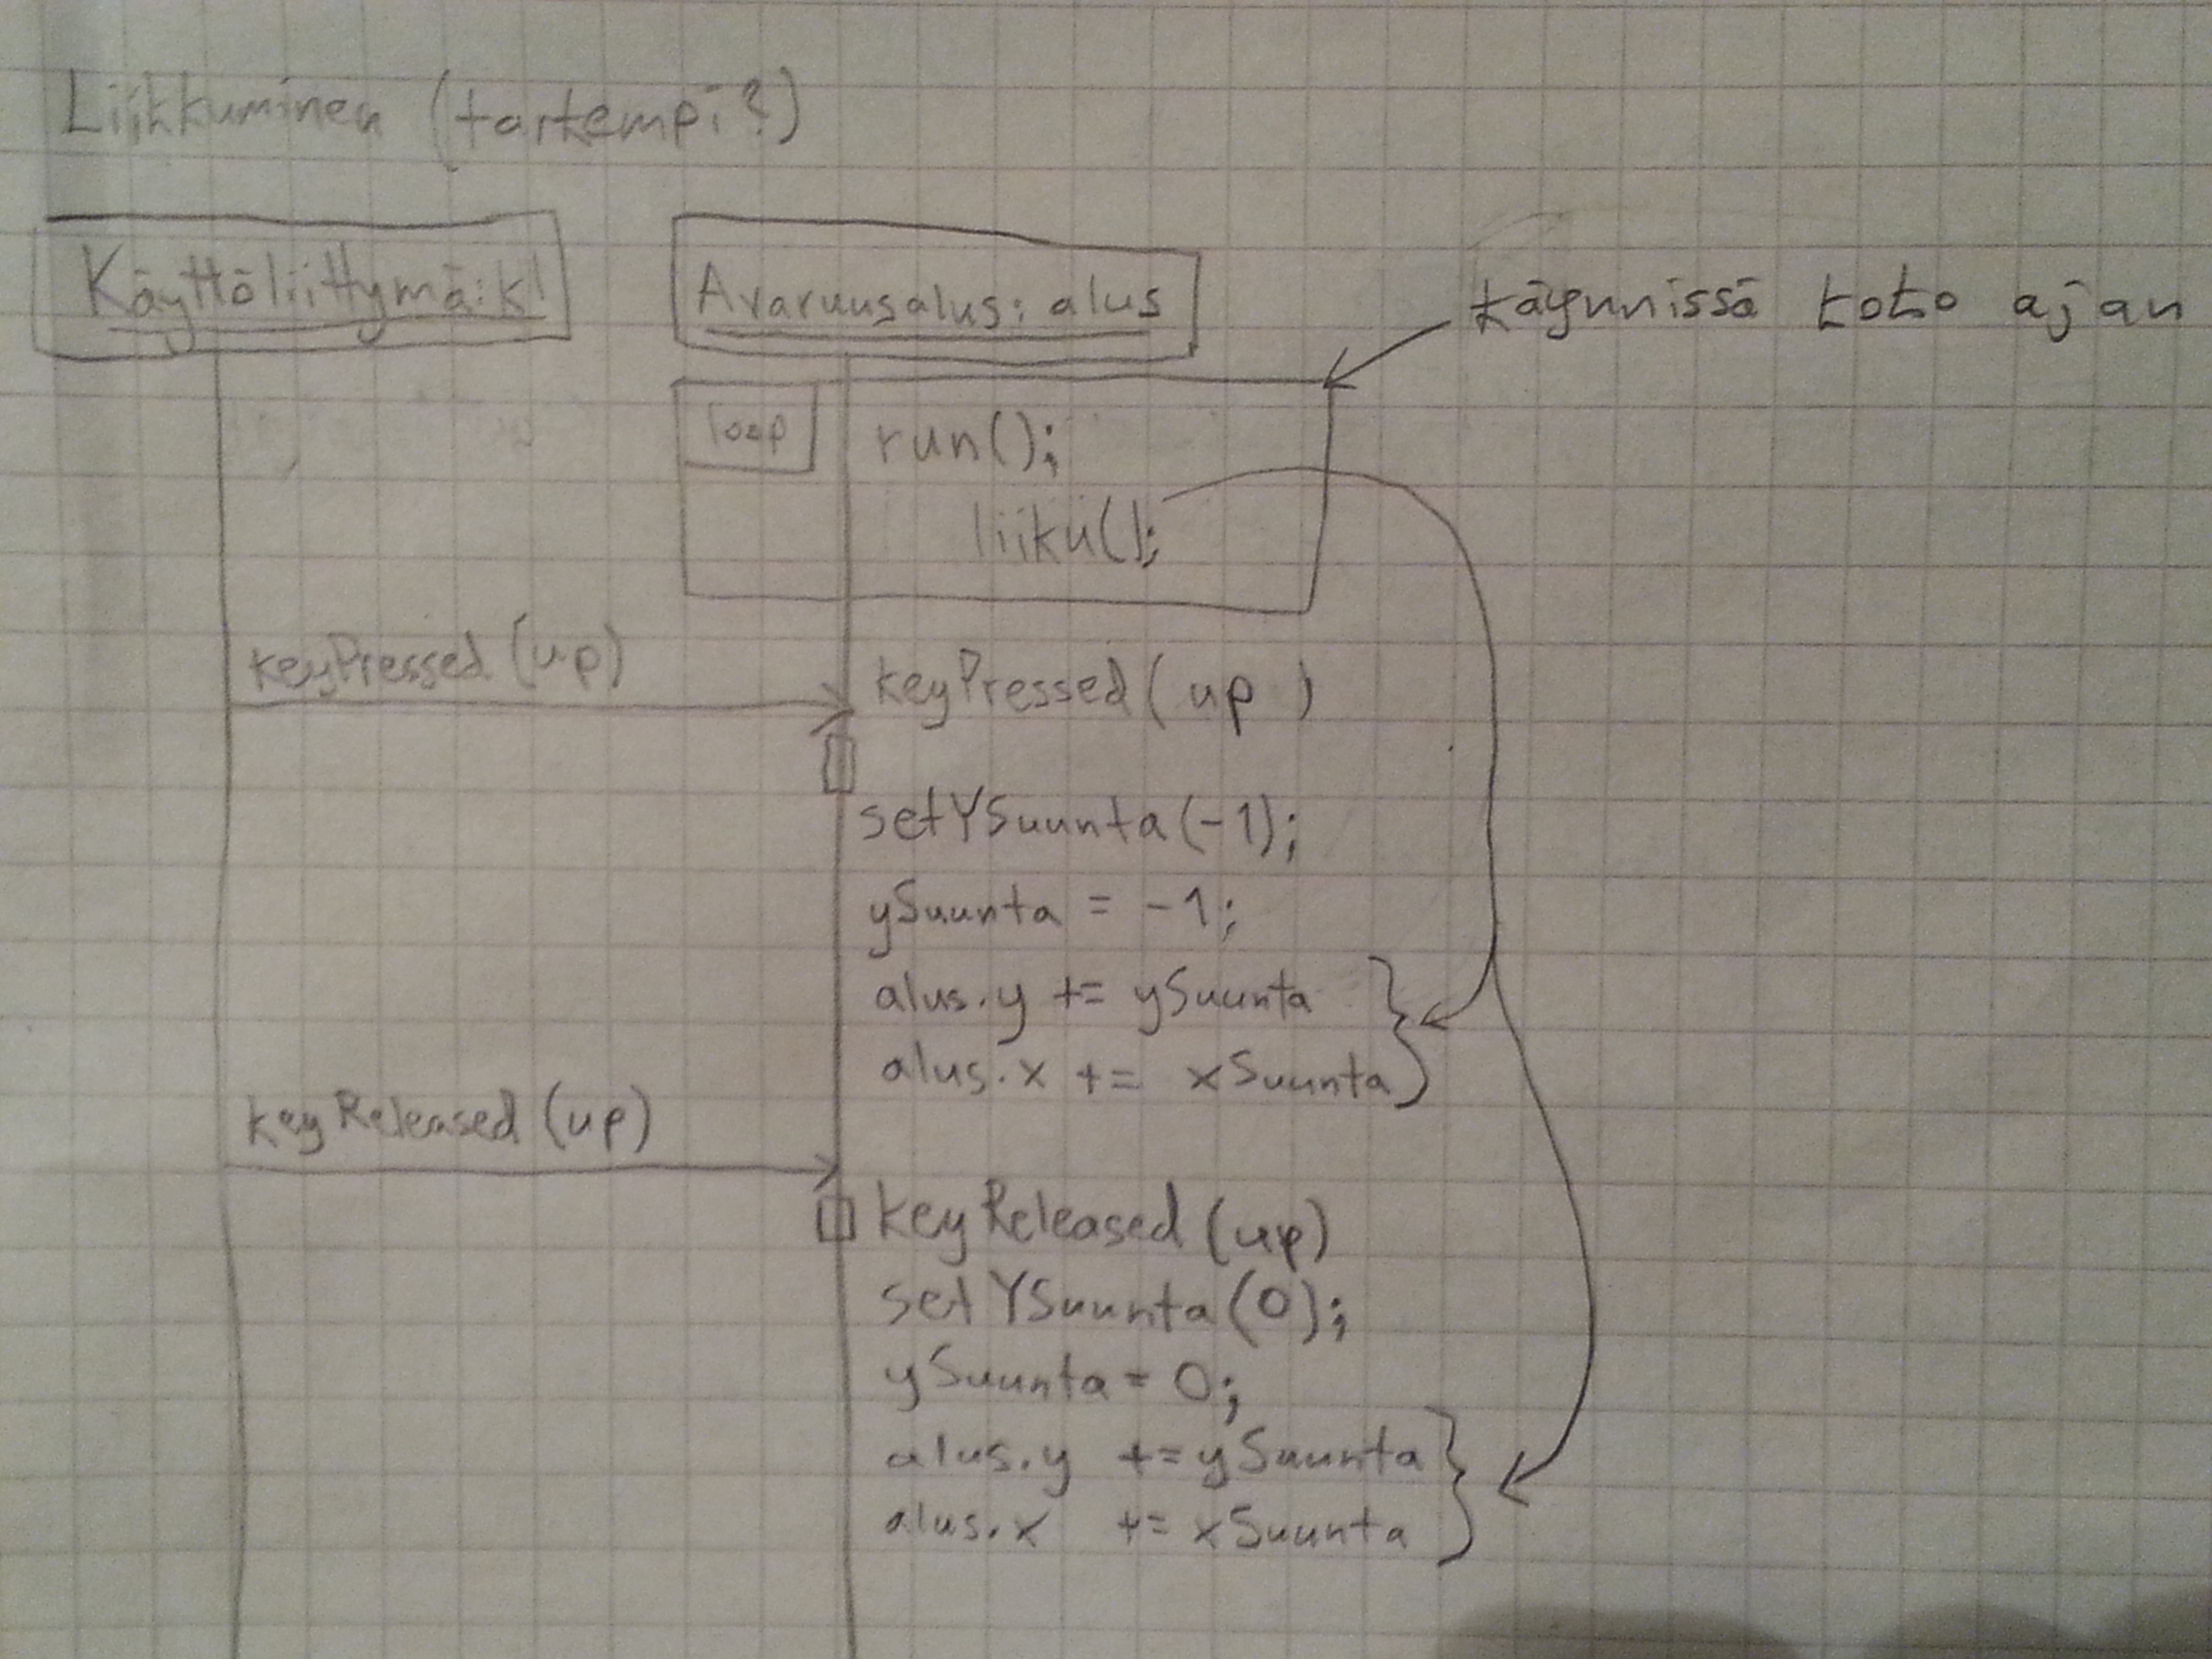 Liikkuminen (tarkempi?)
Käyttöliittymä:kl
Avaruusalus: alus
käynnissä koko ajan
loop
run();
liiku();
keyPressed (up)
keyPressed( up )
setYSuunta(-1);
ySuunta = -1;
alus.y += ySuunta
alus.x += xSuunta
keyReleased (up)
keyReleased (up)
setYSuunta(0);
ySuunta = 0;
alus.y += ySuunta
alus.x += xSuunta